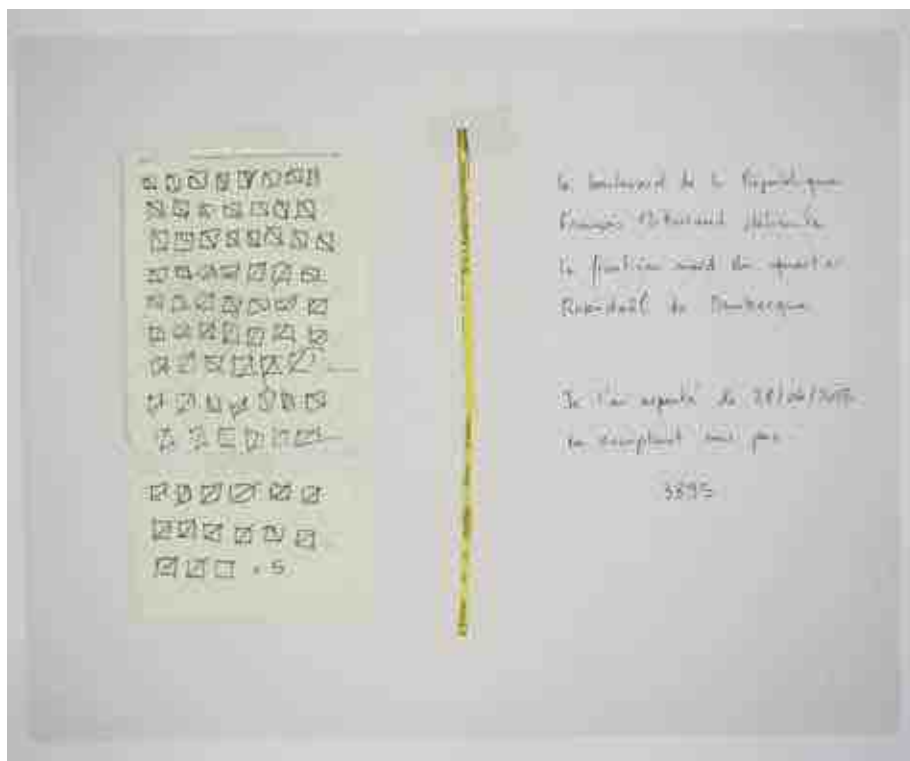 + 5
le boulevard de la République
François Mitterrand délimite
la frontière nord du quartier
Rosendaël de Dunkerque
Je l'ai arpenté le
en comptant mes pas
3895